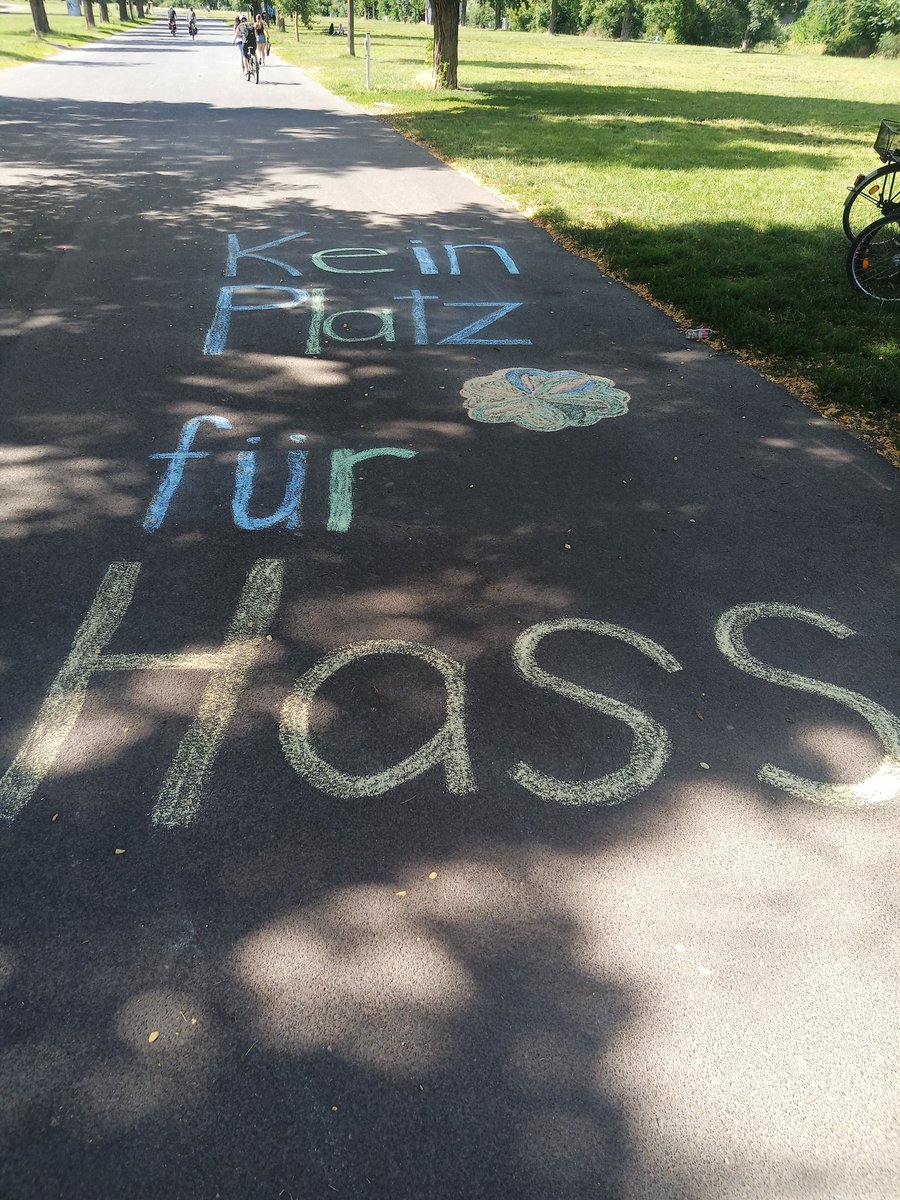 Kein
Platz
für
Hass